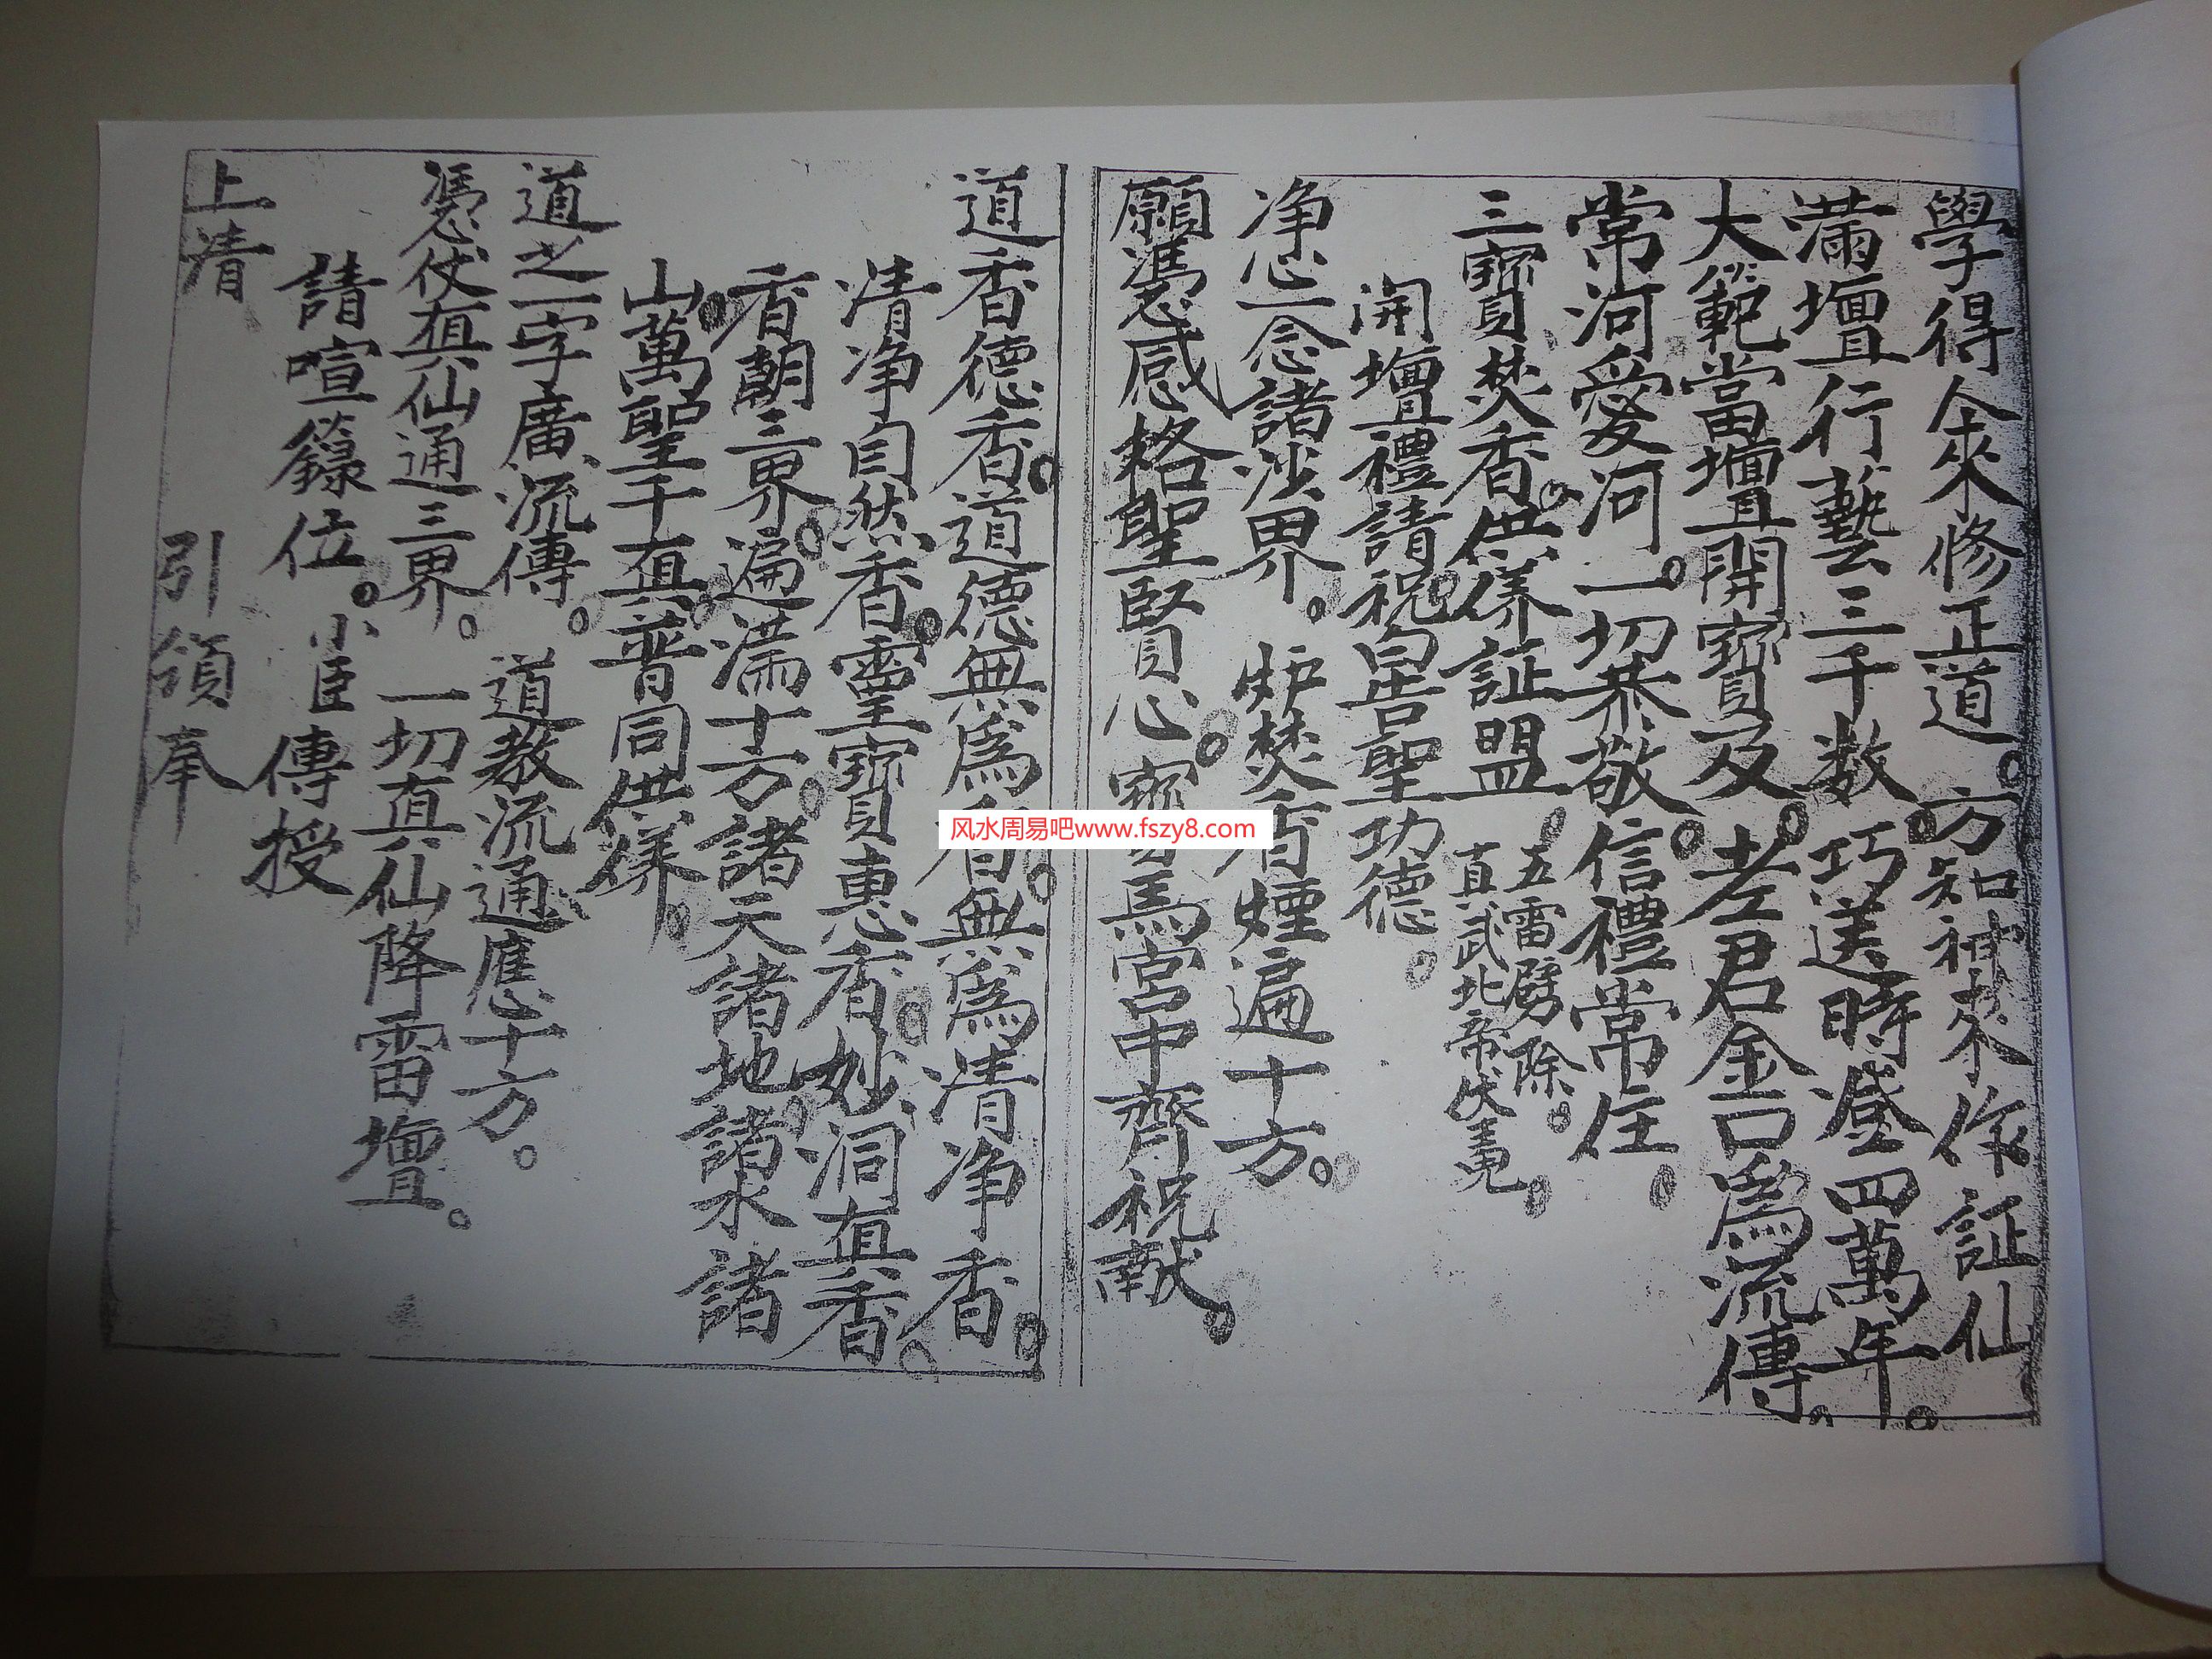 學得金來修正道。方知神來作証仙
滿壇行藝三千数。巧送時燈四萬年。
大範當壇開寶及。老君金口為流傳。
常河愛河。一切恭敬。信禮常住。
三寶焚香。供養証盟
五雷劈除。
真武北帝伏魔。
開壇禮請祝。白告聖功德。
净心一念諸沙界。炉焚香煙遍十方。
願憑感格聖賢心。寶馬宮中齊祝献。
道香德香。道德無為香。無為清净香。
清净自然香。靈寶惠香。妙洞真香。
香朝三界。遍满十方。諸天諸地。諸水諸
山。萬聖千真。普同供養。
道之一字廣流傳。道教流通應十方。
憑仗真仙通三界。一切真仙降雷壇。
請喧籙位。小臣傳授
上清 引領奉
风水周易吧www.fszy8.com